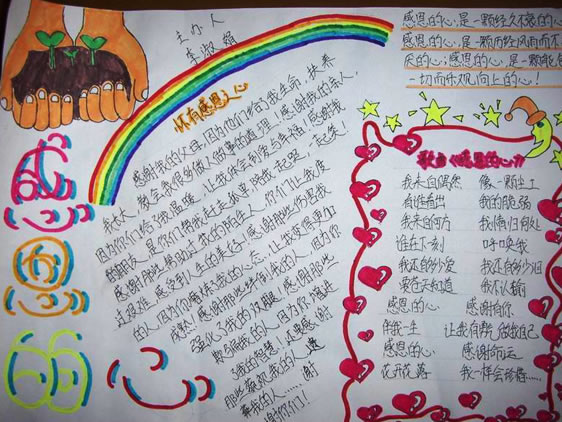 感恩的心
主办人
李淑娟
怀有感恩之心
感谢我的父母,因为他们给了我生命,扶养
我长大,教会我很多做人做事的道理!感谢我的亲人,
因为你们给了我温暖,让我体会到爱与幸福!感谢我
的朋友,是你们帮我赶走孤单陪我一起哭,一起笑!
感谢那些帮助过我的陌生人,你们让我度
过艰难,感受到人生的美好!感谢那些伤害我
的人,因为你们磨练了我的心态,让我变得更加
成熟!感谢那些绊倒我的人,因为你
强化了我的双腿,感谢那些
欺骗我的人,因为你增进
了我的智慧!还要感谢
那些藐视我的人
谢你们!
感恩的心,是一颗经久不衰的心
感恩的心,是一颗历经风雨而不
厌的心;感恩的心,是一颗能包
一切而乐观向上的心!
歌曲《感恩的心》
我来自偶然 像一颗尘土
有谁看出 我的脆弱
我来自何方 我情归何处
谁在下刻 呼唤我
感恩的心 感谢有你
伴我一生 让我有勇气做我自己
感恩的心 感谢命运
花开花落 我一样会珍惜……